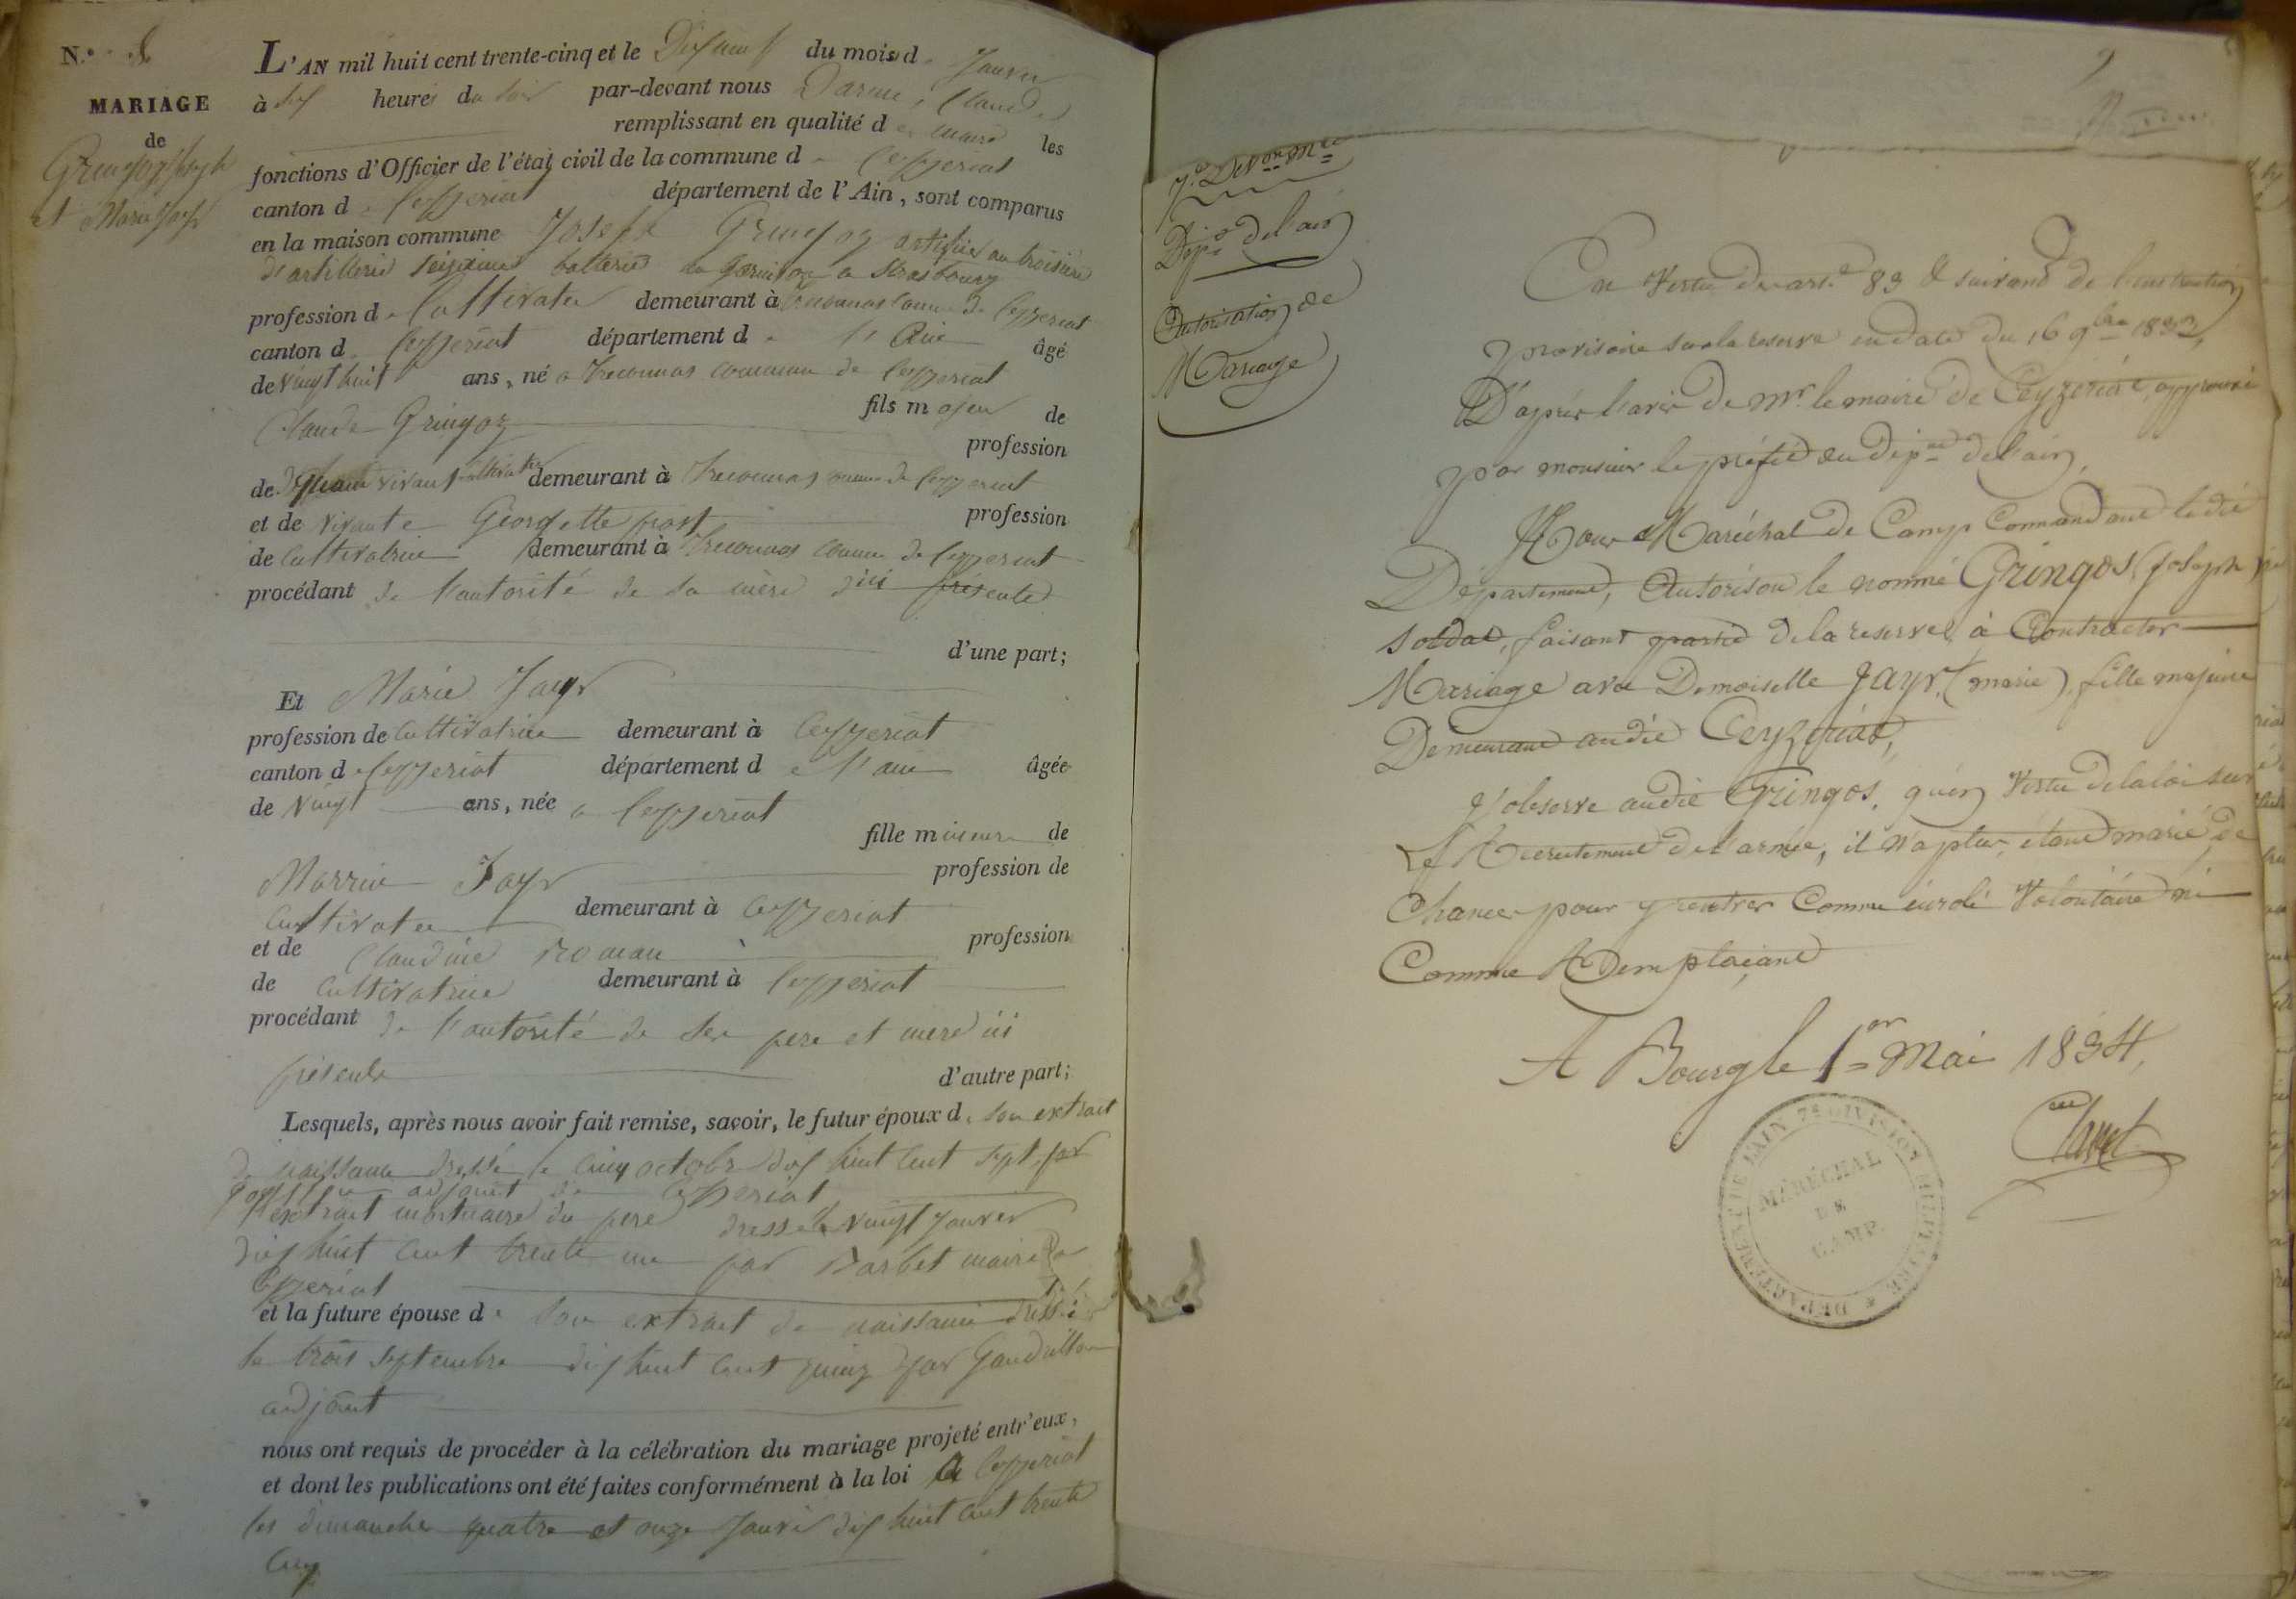 N.º 8
MARIAGE
de
Gringoz Joseph
et Marie Jayr
L'AN mil huit cent trente-cinq et le Dix neuf du mois de Janvier
à six heures du soir par-devant nous Darme, Claude
remplissant en qualité de maire les
fonctions d'Officier de l'état civil de la commune de Ceyzeriat
canton de Ceyzeriat département de l'Ain, sont comparus
en la maison commune Joseph Gringoz artificier au troisième
d'artillerie seizieme batterie en garnison a Strasbourg
profession de Cultivateur demeurant à Treconnas Comune de Ceyzeriat
canton de Ceyzeriat département de l'Ain âgé
de vingt huit ans, né a Treconnas commune de Ceyzeriat
fils majeur de
Claude Gringoz
profession
de vivant cultivateur demeurant à Treconnas comune de Ceyzeriat
et de vivante Georgette profession
de Cultivatrice demeurant à Treconnas comune de Ceyzeriat
procédant de l'autorité de sa mère ici présente
d'une part;
Et Marie Jayr
profession de Cultivatrice demeurant à Ceyzeriat
canton de Ceyzeriat département de l'ain âgée
de vingt ans, née a Ceyzeriat
fille mineure de
Marrin Jayr
profession de
Cultivateur demeurant à Ceyzeriat
et de Claudine profession
de Cultivatrice demeurant à Ceyzeriat
procédant de l'autorité de ses pere et mere ici
présents
d'autre part;
Lesquels, après nous avoir fait remise, savoir, le futur époux de son extrait
de naissance dressé le cinq octobre dix huit cent sept par
adjoint de Ceyzeriat
l'extrait mortuaire du pere dressé le vingt Janvier
dix huit cent trente un par Barbet maire de
Ceyzeriat
et la future épouse de son extrait de naissance dressé
le trois septembre dix huit cent quinz par Gaudillon
adjoint
nous ont requis de procéder à la célébration du mariage projeté entr'eux,
et dont les publications ont été faites conformément à la loi a Ceyzeriat
les dimanche quatre et onze Janvier dix huit cent trente
cinq
9
7.e Don Mre
Dép.t de l'ain
Autorisation de
Mariage
En Vertu de art.e 83 & suivans de l'instruction
provisoire sur la reserve en date du 16 9bre 1833,
D'après l'avis de Mr. le maire de Ceyzeriat, approuvé
par monsieur le préfet du dép.t de l'ain,
Nous Maréchal de Camp Commandant ledit
Département, Autorisons le nommé Gringos, (Joseph)
soldat, faisant partie de la reserve, à Contracter
Mariage avec Demoiselle Jayr, (marie), fille majeure
Demeurant audit Ceyzeriat,
J'observe audit Gringos, qu'en Vertu de la loi sur
le Recrutement de l'armée, il n'a plus, étant marié, de
Chances pour y rentrer Comme enrolé Volontaire ni
Comme Remplaçant
A Bourg le 1er Mai 1834,
DÉPARTEMENT DE L'AIN 7e DIVISION MILITAIRE
MARÉCHAL
DE
CAMP.